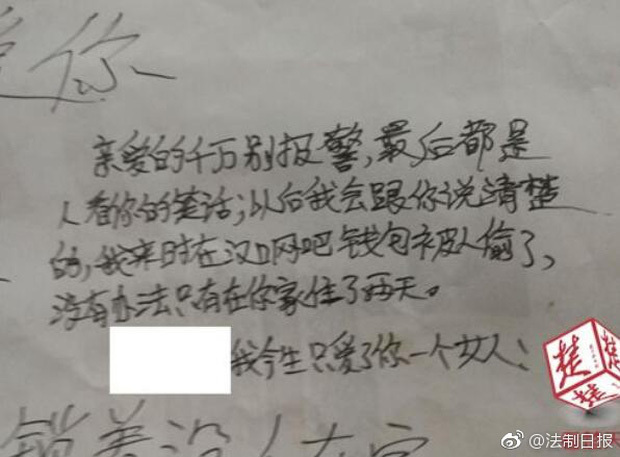 爱你
亲爱的千万别报警,最后都是
人看你的笑话;以后我会跟你说清楚
的,我来时在汉口网吧钱包被人偷了,
没有办法只有在你家住了两天。
我今生只爱了你一个女人;
锁着没人在家
楚
@法制日报